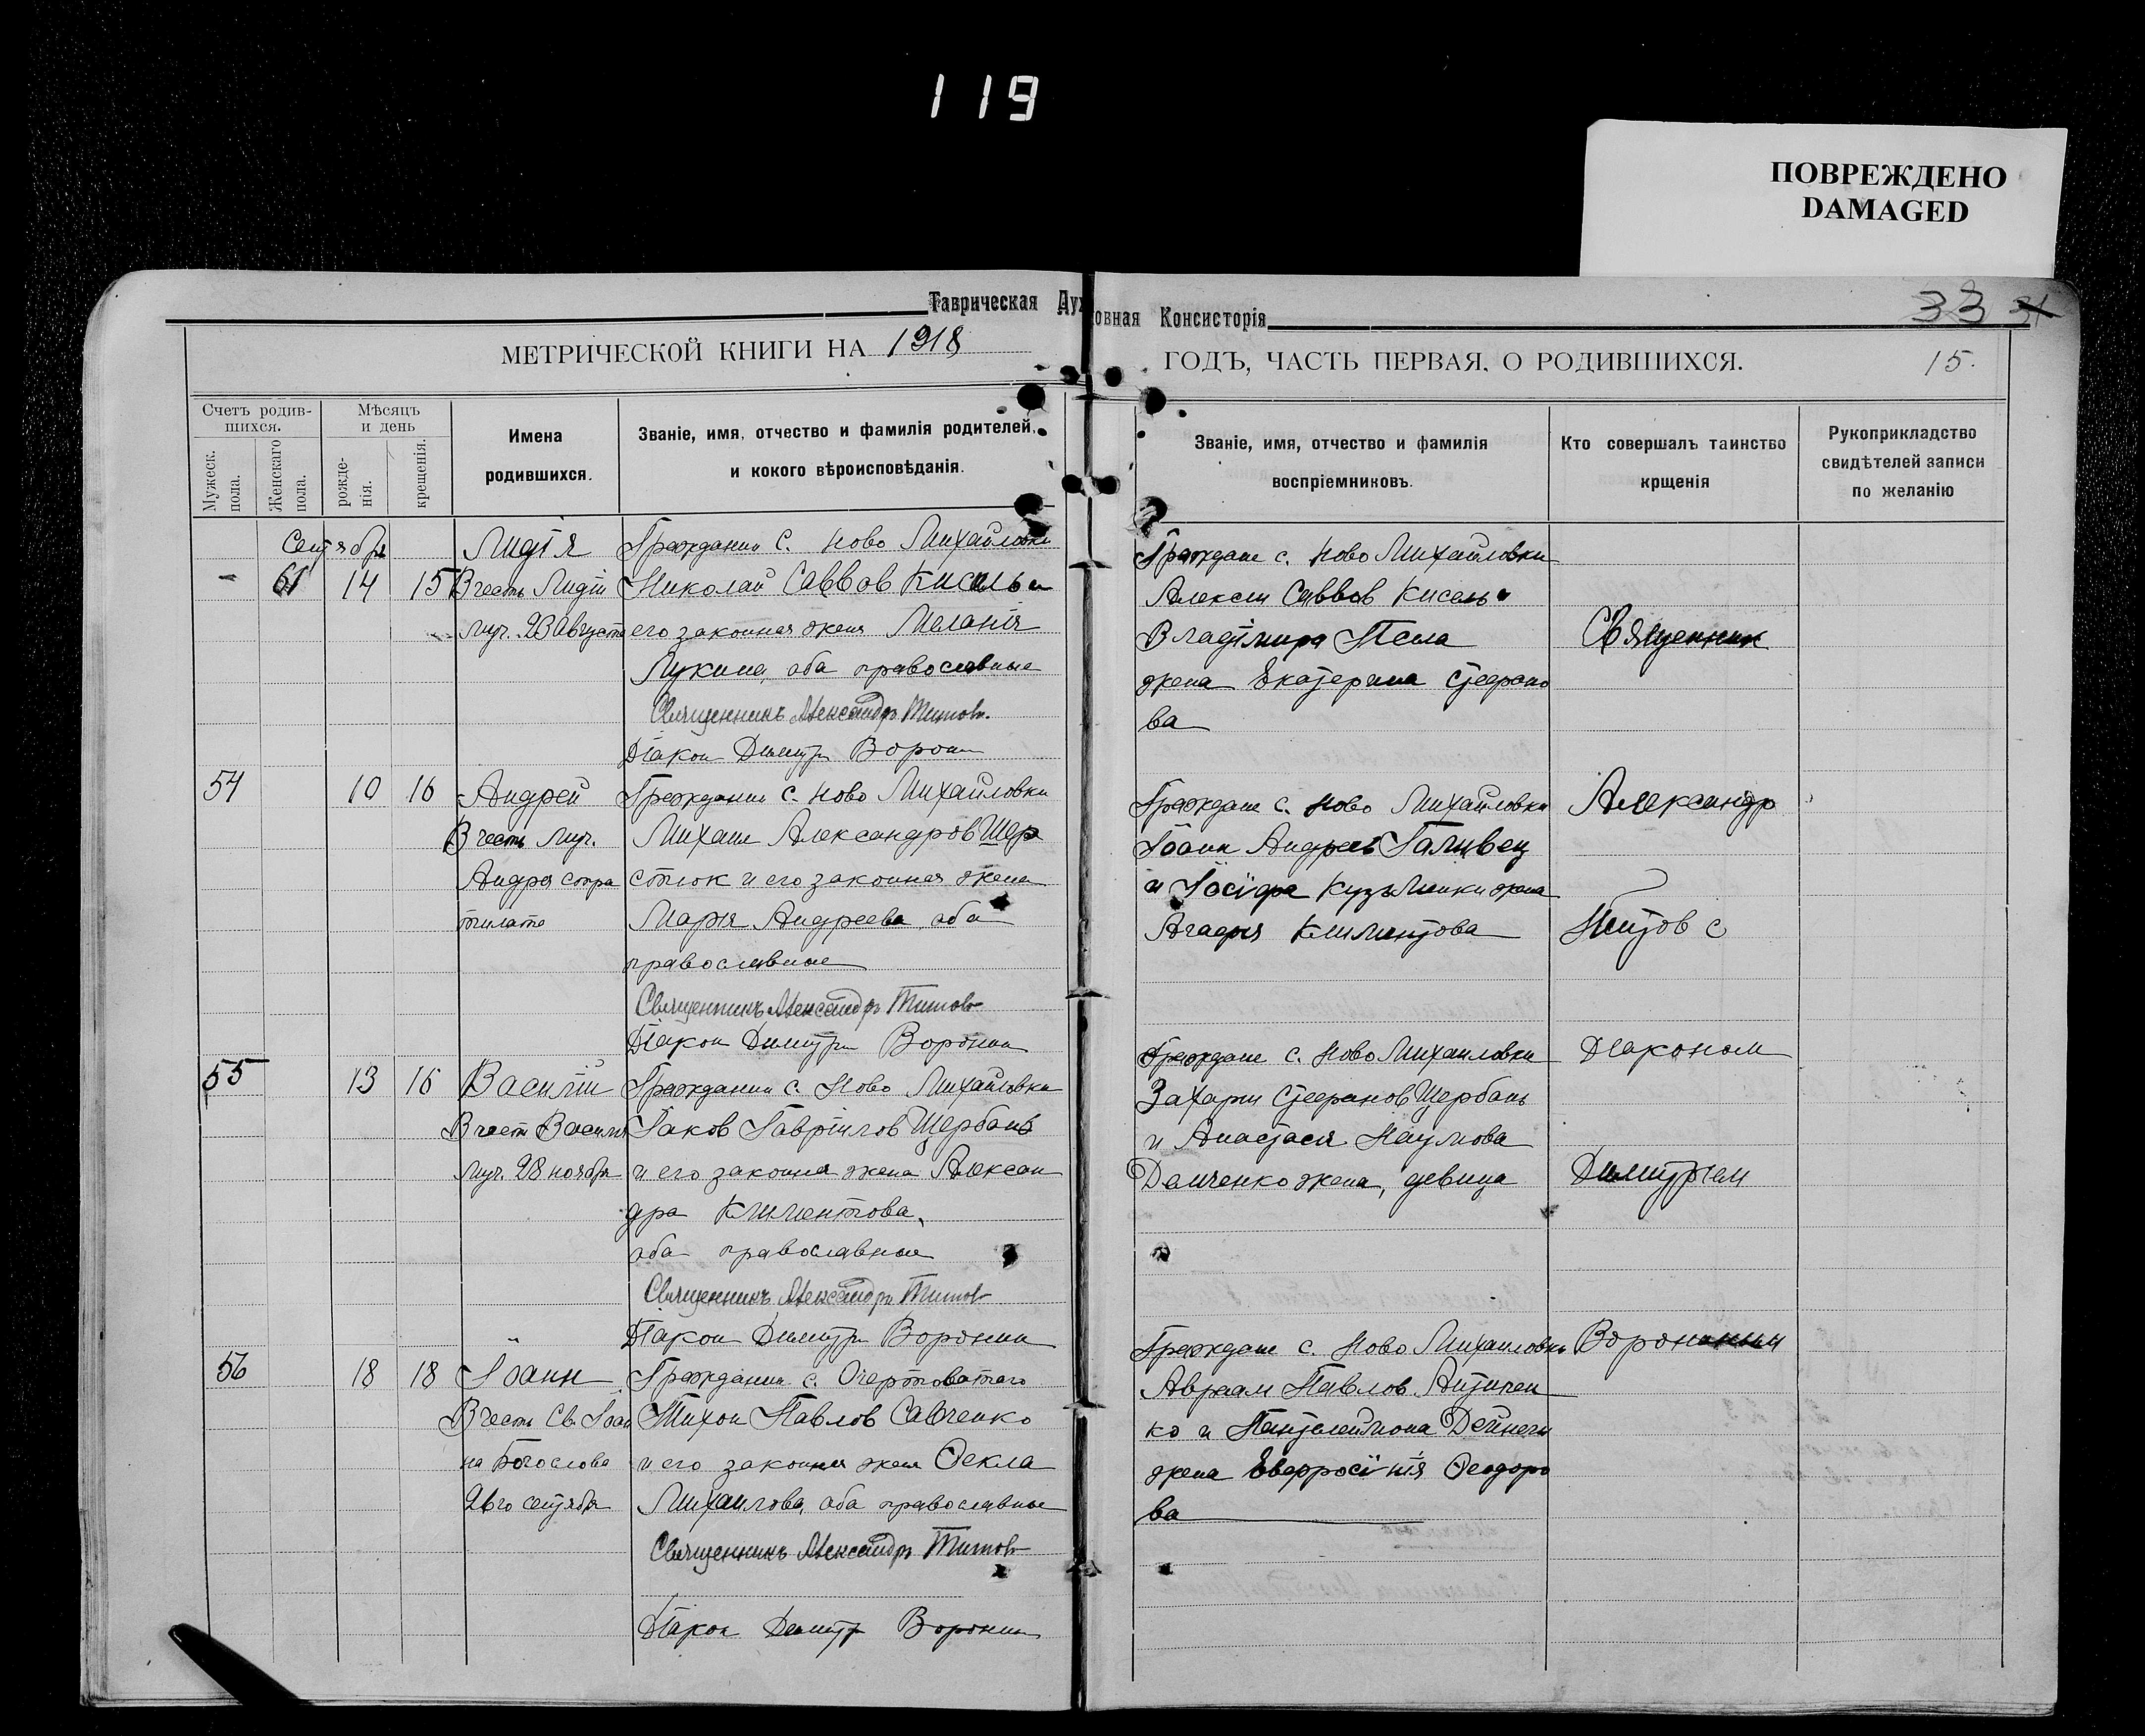 119
ПОВРЕЖДЕНО
DAMAGED
Таврическая Духовная Консисторія
33 31
МЕТРИЧЕСКОЙ КНИГИ НА 1918
ГОДЪ, ЧАСТЬ ПЕРВАЯ, О РОДИВШИХСЯ.
15.
Счетъ родив-
шихся.
Мужеск.
пола.
Женскаго
пола.
Мѣсяцъ
и день
рожде-
нія.
крещенія.
Имена
родившихся.
Званіе, имя, отчество и фамилія родителей,
и кокого вѣроисповѣданія.
Званіе, имя, отчество и фамилія
воспріемниковъ.
Кто совершалъ таинство
крщенія
Рукоприкладство
свидѣтелей записи
по желанію
Сентября
- 61 14 15
Лидія
В честь Лидіи
муч. 23 Августа
Гражданин с. Ново Михайловки
Николай Саввов Кисель и
его законная жена Меланія
Лукина, оба православные
Священникъ Александръ Титовъ.
Діакон Димитр Ворон
Граждане с. Ново Михайловки
Алексеи Саввов Кисель и
Владіміра Псла
жена Екатерина Стефано
ва
54 10 16
Андрей
В честь муч.
Андрея Стра
тилата
Гражданин с. Ново Михайловки
Михаил Александров Шер
стюк и его законная жена
Марія Андреева, оба
православные
Священникъ Александръ Титовъ
Діакон Димитри Воронин
Граждане с. Ново Михайловки
Іоанн Андреев Галивец
и Іосіфа Кузьменки жена
Агафия Климентова
55 13 16
Василій
В честь Василия
муч. 28 ноября
Гражданин с. Ново Михайловки
Іаков Гавріилов Щербань
и его законная жена Алексан
дра Климентова,
оба православные
Священникъ Александръ Титовъ
Діакон Димитри Воронин
Граждане с. Ново Михаиловки
Захарии Стефанов Щербань
и Анастасия Наумова
Демченко жена, девица
56 18 18
Іоанн
В честь Св. Іоан
на Богослова
26го сентября
Гражданин с. Очертоватого
Тихон Павлов Савченко
и его законная жена Фекла
Михаилова, оба православные
Священникъ Александръ Титовъ
Діакон Димитр Воронин
Граждане с. Ново Михаиловки
Авраам Павлов Антипен
ко и Пантелеимона Дейнеги
жена Евфросінія Феодоро
ва
Священник
Александр
Титов с
Діаконом
Димитрием
Ворониным